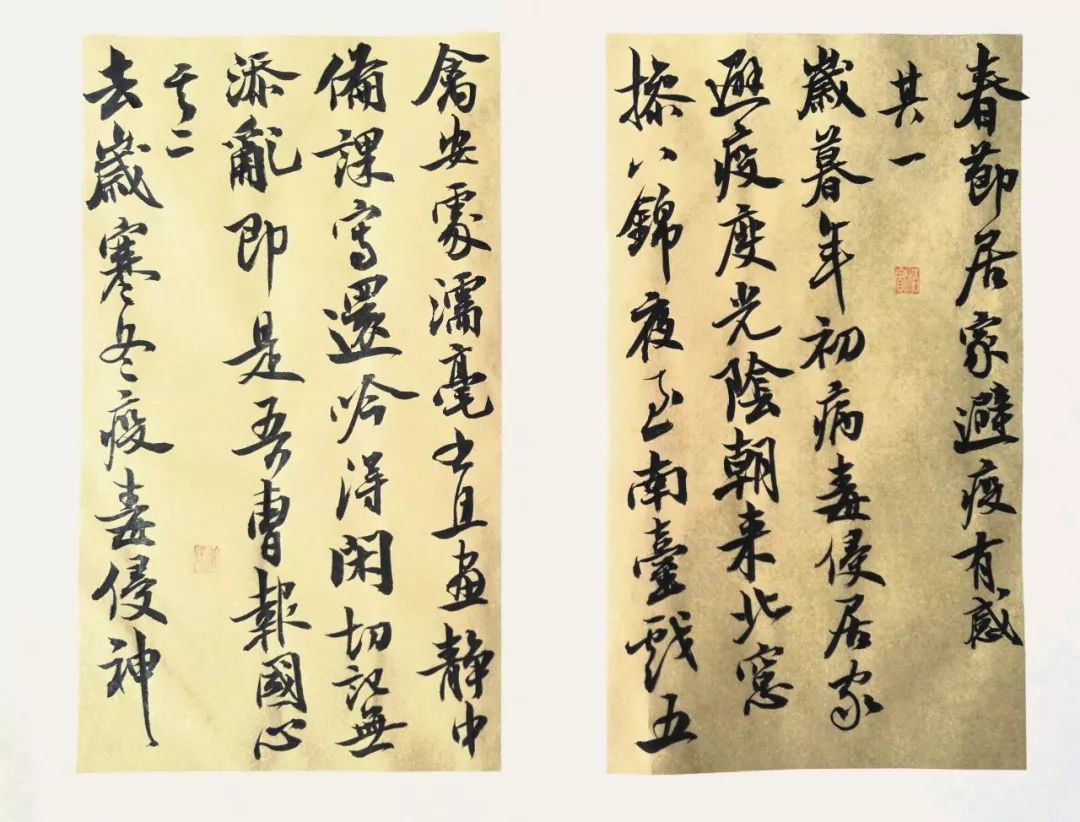 春節居家避疫有感
其一
歲暮年初病毒侵居家
避疫度光陰朝来北窓
操八錦夜至南臺戲五
禽安處濡毫书且畫静中
備課寫還吟得閑切記無
添亂即是吾曹報國心
其二
去歲寒冬疫毒侵神